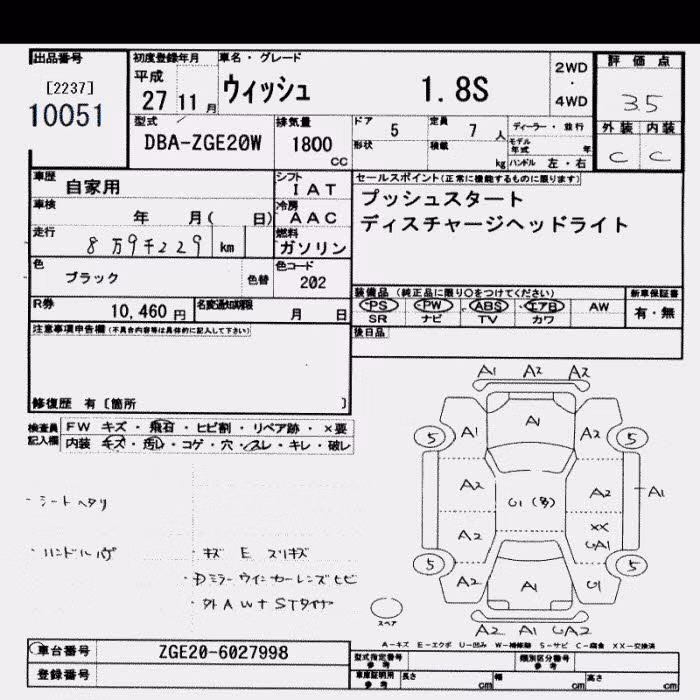 出品番号
[2237]
10051
初度登録年月
平成
27 11 月
車名・グレード
ウィッシュ 1.8S
2WD
・
4WD
評価点
3.5
外装 内装
C C
型式
DBA-ZGE20W
排気量
1800
CC
ドア 5
定員 7 人
ディーラー・並行
形状
積載 kg
モデル年式 年
ハンドル 左・右
車歴
自家用
シフト
IAT
車検
年 月( 日)
冷房
AAC
走行
8万9千229 km
燃料
ガソリン
セールスポイント(正常に機能するものに限ります)
プッシュスタート
ディスチャージヘッドライト
色
ブラック
色替
色コード
202
装備品(純正品に限り○をつけてください)
PS PW ABS エアB AW
SR ナビ TV カワ
新車保証書
有・無
R券
10,460 円
名変通知期限
月 日
後日品
注意事項申告欄(不具合内容等は具体的に記入して下さい)
修復歴 有〔箇所 〕
検査員
記入欄
FW キズ・飛石・ヒビ割・リペア跡・×要
内装 キズ・汚レ・コゲ・穴・スレ・キレ・破レ
・シートヘタリ
・ハンドルハゲ
・キズ E スリキズ
・Dミラーウインカーレンズヒビ
・外AW+STタイヤ
A1 A2 A2
A1 A1 A2
5 5
A2 U1(多) A2 A1
A2 XX
UA1
5 5
A2 A1 U1
A2 A1 UA2
スペア
A-キズ E-エクボ U-凹み W-補修跡 S-サビ C-腐食 XX-交換済
車台番号
ZGE20-6027998
登録番号
型式指定番号
参考
類別区分番号
参考
車庫証明用
参考
長さ cm
幅 cm
高さ cm